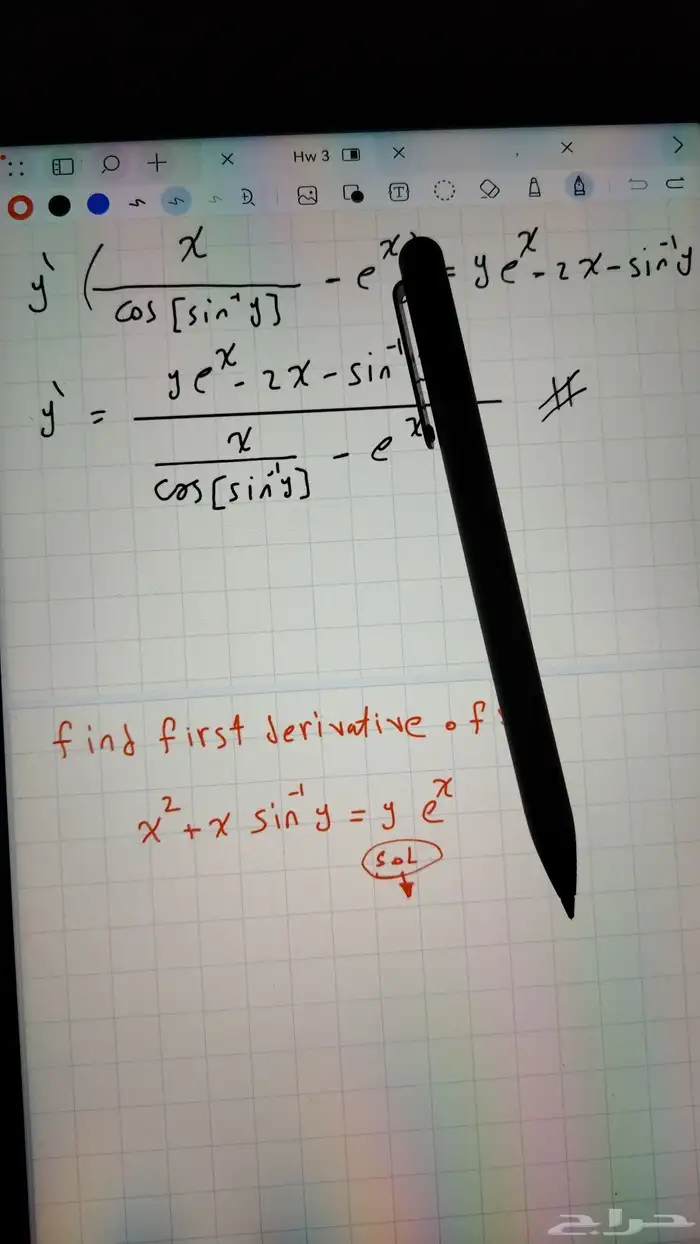 Hw 3
y` ( x / cos [sin⁻¹ y] - eˣ ) = y eˣ - 2x - sin⁻¹ y
y` = y eˣ - 2x - sin⁻¹ / x / cos [sin⁻¹ y] - eˣ #
find first derivative of
x² + x sin⁻¹ y = y eˣ
sol
حراج